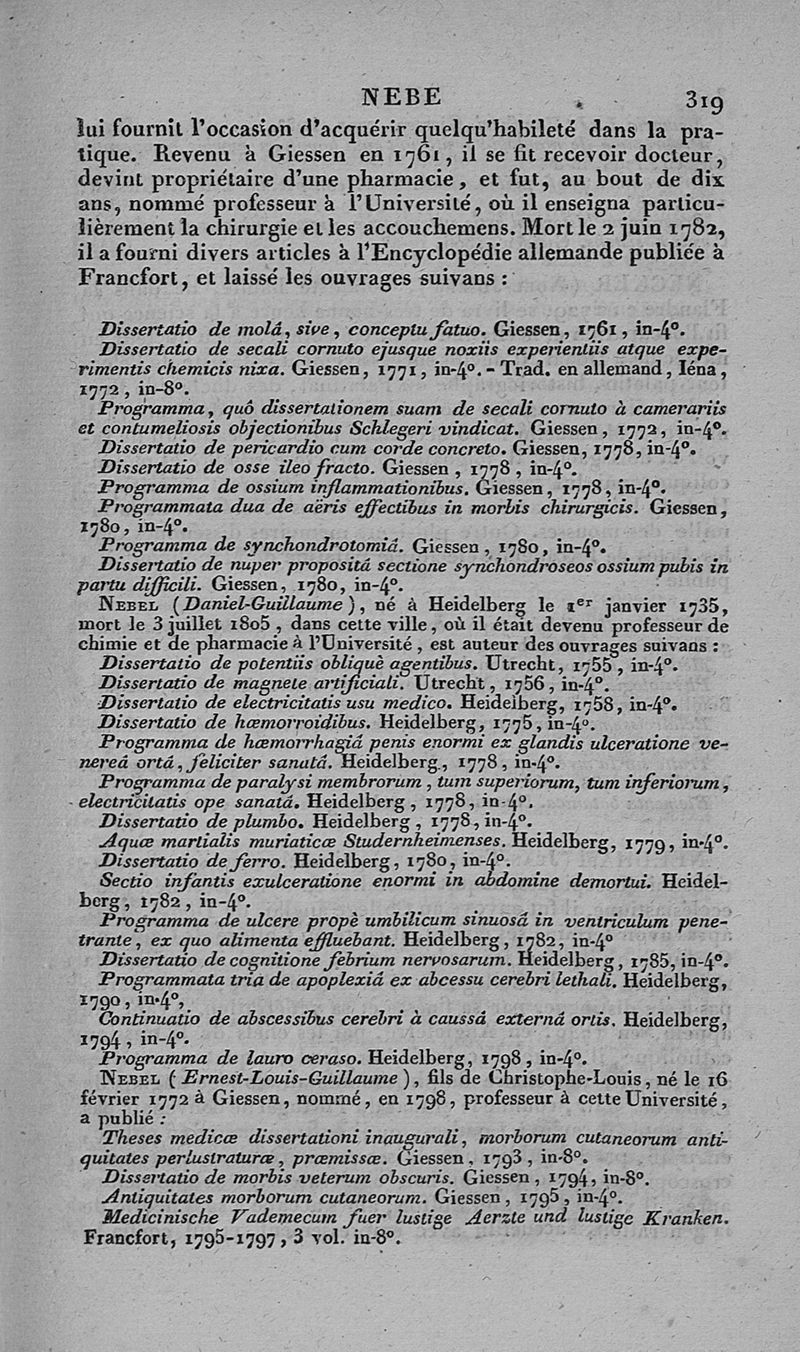 NEBE 319
lui fournit l'occasion d'acquérir quelqu'habileté dans la pra-
tique. Revenu à Giessen en 1761, il se fit recevoir docteur,
devint propriétaire d'une pharmacie, et fut, au bout de dix
ans, nommé professeur à l'Université, où il enseigna particu-
lièrement la chirurgie et les accouchemens. Mort le 2 juin 1782,
il a fourni divers articles à l'Encyclopédie allemande publiée à
Francfort, et laissé les ouvrages suivans :
Dissertatio de molâ, sive, conceptu fatuo. Giessen, 1761, in-4°.
Dissertatio de secali cornuto ejusque noxiis experientiis atque expe-
rimentis chemicis nixa. Giessen, 1771, in-4°. - Trad. en allemand, Iéna,
1772, in-8°.
Programma, quô dissertationem suam de secali cornuto à camerariis
et contumeliosis objectionibus Schlegeri vindicat. Giessen, 1772, in-4°.
Dissertatio de pericardio cum corde concreto. Giessen, 1778, in-4°.
Dissertatio de osse ileo fracto. Giessen, 1778, in-4°.
Programma de ossium inflammationibus. Giessen, 1778, in-4°.
Programmata dua de aëris effectibus in morbis chirurgicis. Giessen,
1780, in-4°.
Programma de synchondrotomiâ. Giessen, 1780, in-4°.
Dissertatio de nuper propositâ sectione synchondroseos ossium pubis in
partu difficili. Giessen, 1780, in-4°.
NEBEL (Daniel-Guillaume), né à Heidelberg le 1er janvier 1735,
mort le 3 juillet 1805, dans cette ville, où il était devenu professeur de
chimie et de pharmacie à l'Université, est auteur des ouvrages suivans :
Dissertatio de potentiis obliquè agentibus. Utrecht, 1755, in-4°.
Dissertatio de magnete artificiali. Utrecht, 1756, in-4°.
Dissertatio de electricitatis usu medico. Heidelberg, 1758, in-4°.
Dissertatio de hæmorroidibus. Heidelberg, 1775, in-4°.
Programma de hæmorrhagiâ penis enormi ex glandis ulceratione ve-
nereâ ortâ, feliciter sanatâ. Heidelberg, 1778, in-4°.
Programma de paralysi membrorum, tum superiorum, tum inferiorum,
electricitatis ope sanatâ. Heidelberg, 1778, in-4°.
Dissertatio de plumbo. Heidelberg, 1778, in-4°.
Aquæ martialis muriaticæ Studernheimenses. Heidelberg, 1779, in-4°.
Dissertatio de ferro. Heidelberg, 1780, in-4°.
Sectio infantis exulceratione enormi in abdomine demortui. Heidel-
berg, 1782, in-4°.
Programma de ulcere propè umbilicum sinuosâ in ventriculum pene-
trante, ex quo alimenta effluebant. Heidelberg, 1782, in-4°
Dissertatio de cognitione febrium nervosarum. Heidelberg, 1785, in-4°.
Programmata tria de apoplexiâ ex abcessu cerebri lethali. Heidelberg,
1790, in-4°,
Continuatio de abscessibus cerebri à caussâ externâ ortis. Heidelberg,
1794, in-4°.
Programma de lauro ceraso. Heidelberg, 1798, in-4°.
NEBEL (Ernest-Louis-Guillaume), fils de Christophe-Louis, né le 16
février 1772 à Giessen, nommé, en 1798, professeur à cette Université,
a publié :
Theses medicæ dissertationi inaugurali, morborum cutaneorum anti-
quitates perlustraturæ, præmissæ. Giessen, 1793, in-8°.
Dissertatio de morbis veterum obscuris. Giessen, 1794, in-8°.
Antiquitates morborum cutaneorum. Giessen, 1795, in-4°.
Medicinische Vademecum fuer lustige Aerzte und lustige Kranken.
Francfort, 1795-1797, 3 vol. in-8°.